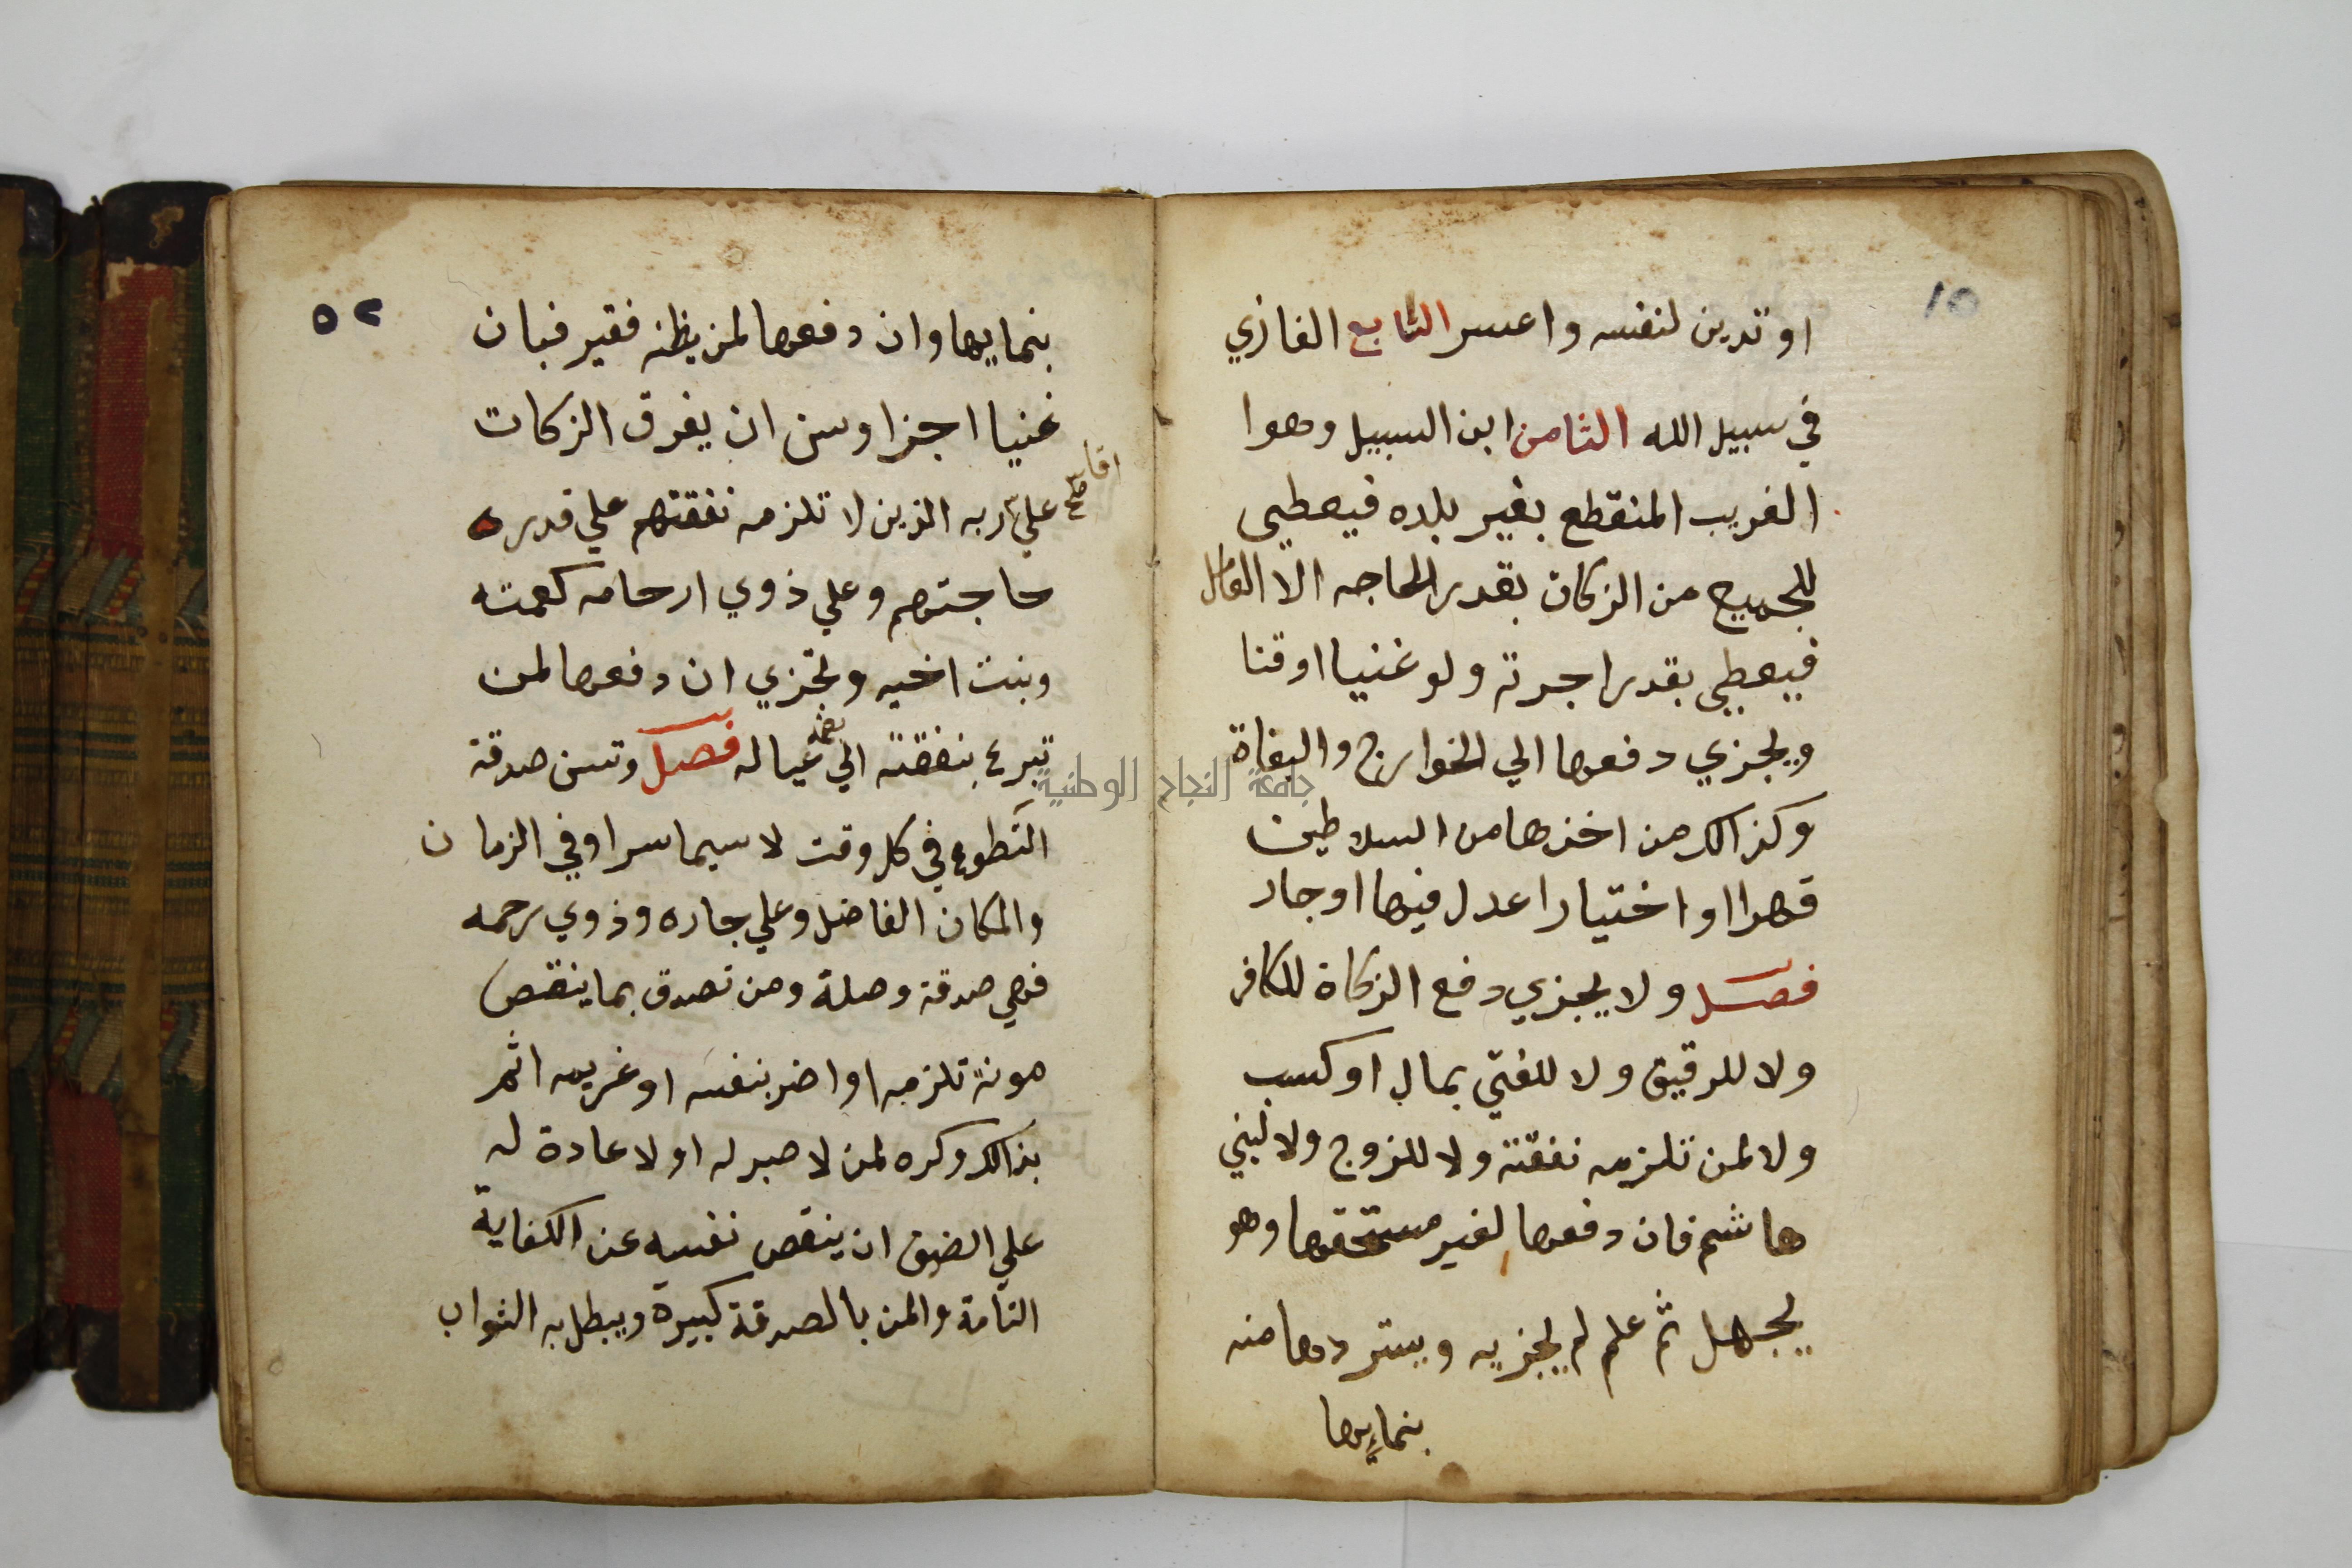 ١٥
او تدين لنفسه واعسر السابع الغازي
في سبيل الله الثامن ابن السبيل وهوا
الغريب المنقطع بغير بلده فيعطي
للجميع من الزكات بقدر الحاجه الا العامل
فيعطي بقدر اجرته ولو غنيا او قنا
ويجزي دفعها الي الخوارج والبغاة
وكذالك من اخذها من السلاطين
قهرا او اختيارا عدل فيها او جار
فصل ولا يجزي دفع الزكاة للكافر
ولا للرقيق ولا للغني بمال او كسب
ولا لمن تلزمه نفقته ولا للزوج ولا لبني
هاشم فان دفعها لغير مستحقها وهو
يجهل ثم علم لم يجزيه ويسترد ها منه
بنمايها
٥٢
بنمايها وان دفعها لمن يظنه فقير فبان
غنيا اجزا وسن ان يفرق الزكات
علي اقاربه الذين لا تلزمه نفقتهم علي قدر
اقا صح
حاجتهم وعلي ذوي ارحامه كعمته
وبنت اخيه وتجزي ان دفعها لمن
تبرع بنفقته الي عياله فصل وتسن صدقة
التطوع في كل وقت لا سيما سرا وفي الزمان
والمكان الفاضل وعلي جاره وذوي رحمه
فهي صدقة وصلة ومن تصدق بما ينقص
مونة تلزمه او اضر بنفسه او غريمه اثم
بذالك وكره لمن لا صبر له او لا عادة له
علي الضيق ان ينقص نفسه عن الكفاية
التامة والمن بالصدقة كبيرة ويبطل به الثواب
جامعة النجاح الوطنية